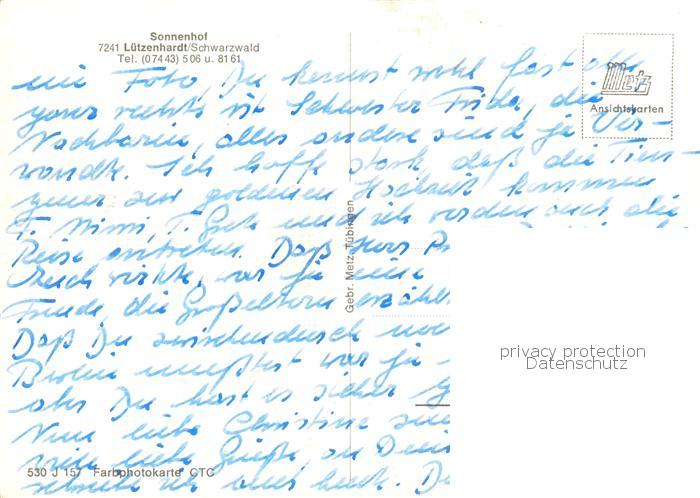 Sonnenhof
7241 Lützenhardt/Schwarzwald
Tel. (07443) 506 u. 8161
Metz
Ansichtskarten
ein Foto, Du kennst wohl fast alle
ganz rechts ist Schwester Frida, die
Nachbarin, alles andere sind ja Ver-
wandte. Ich hoffe stark daß die
zur goldenen Hochzeit kommen
T. Mimi, T. und ich werden auch die
Reise antreten. Daß Herr
Euch, war ja eine
Freude, die Großeltern
Daß Du zwischendurch
mußtest war ja
aber Du hast es sicher
Nun liebe Christine
viele liebe Grüße, an
ich auch
Gebr. Metz, Tübingen
530 J 157 Farbphotokarte CTC
privacy protection
Datenschutz